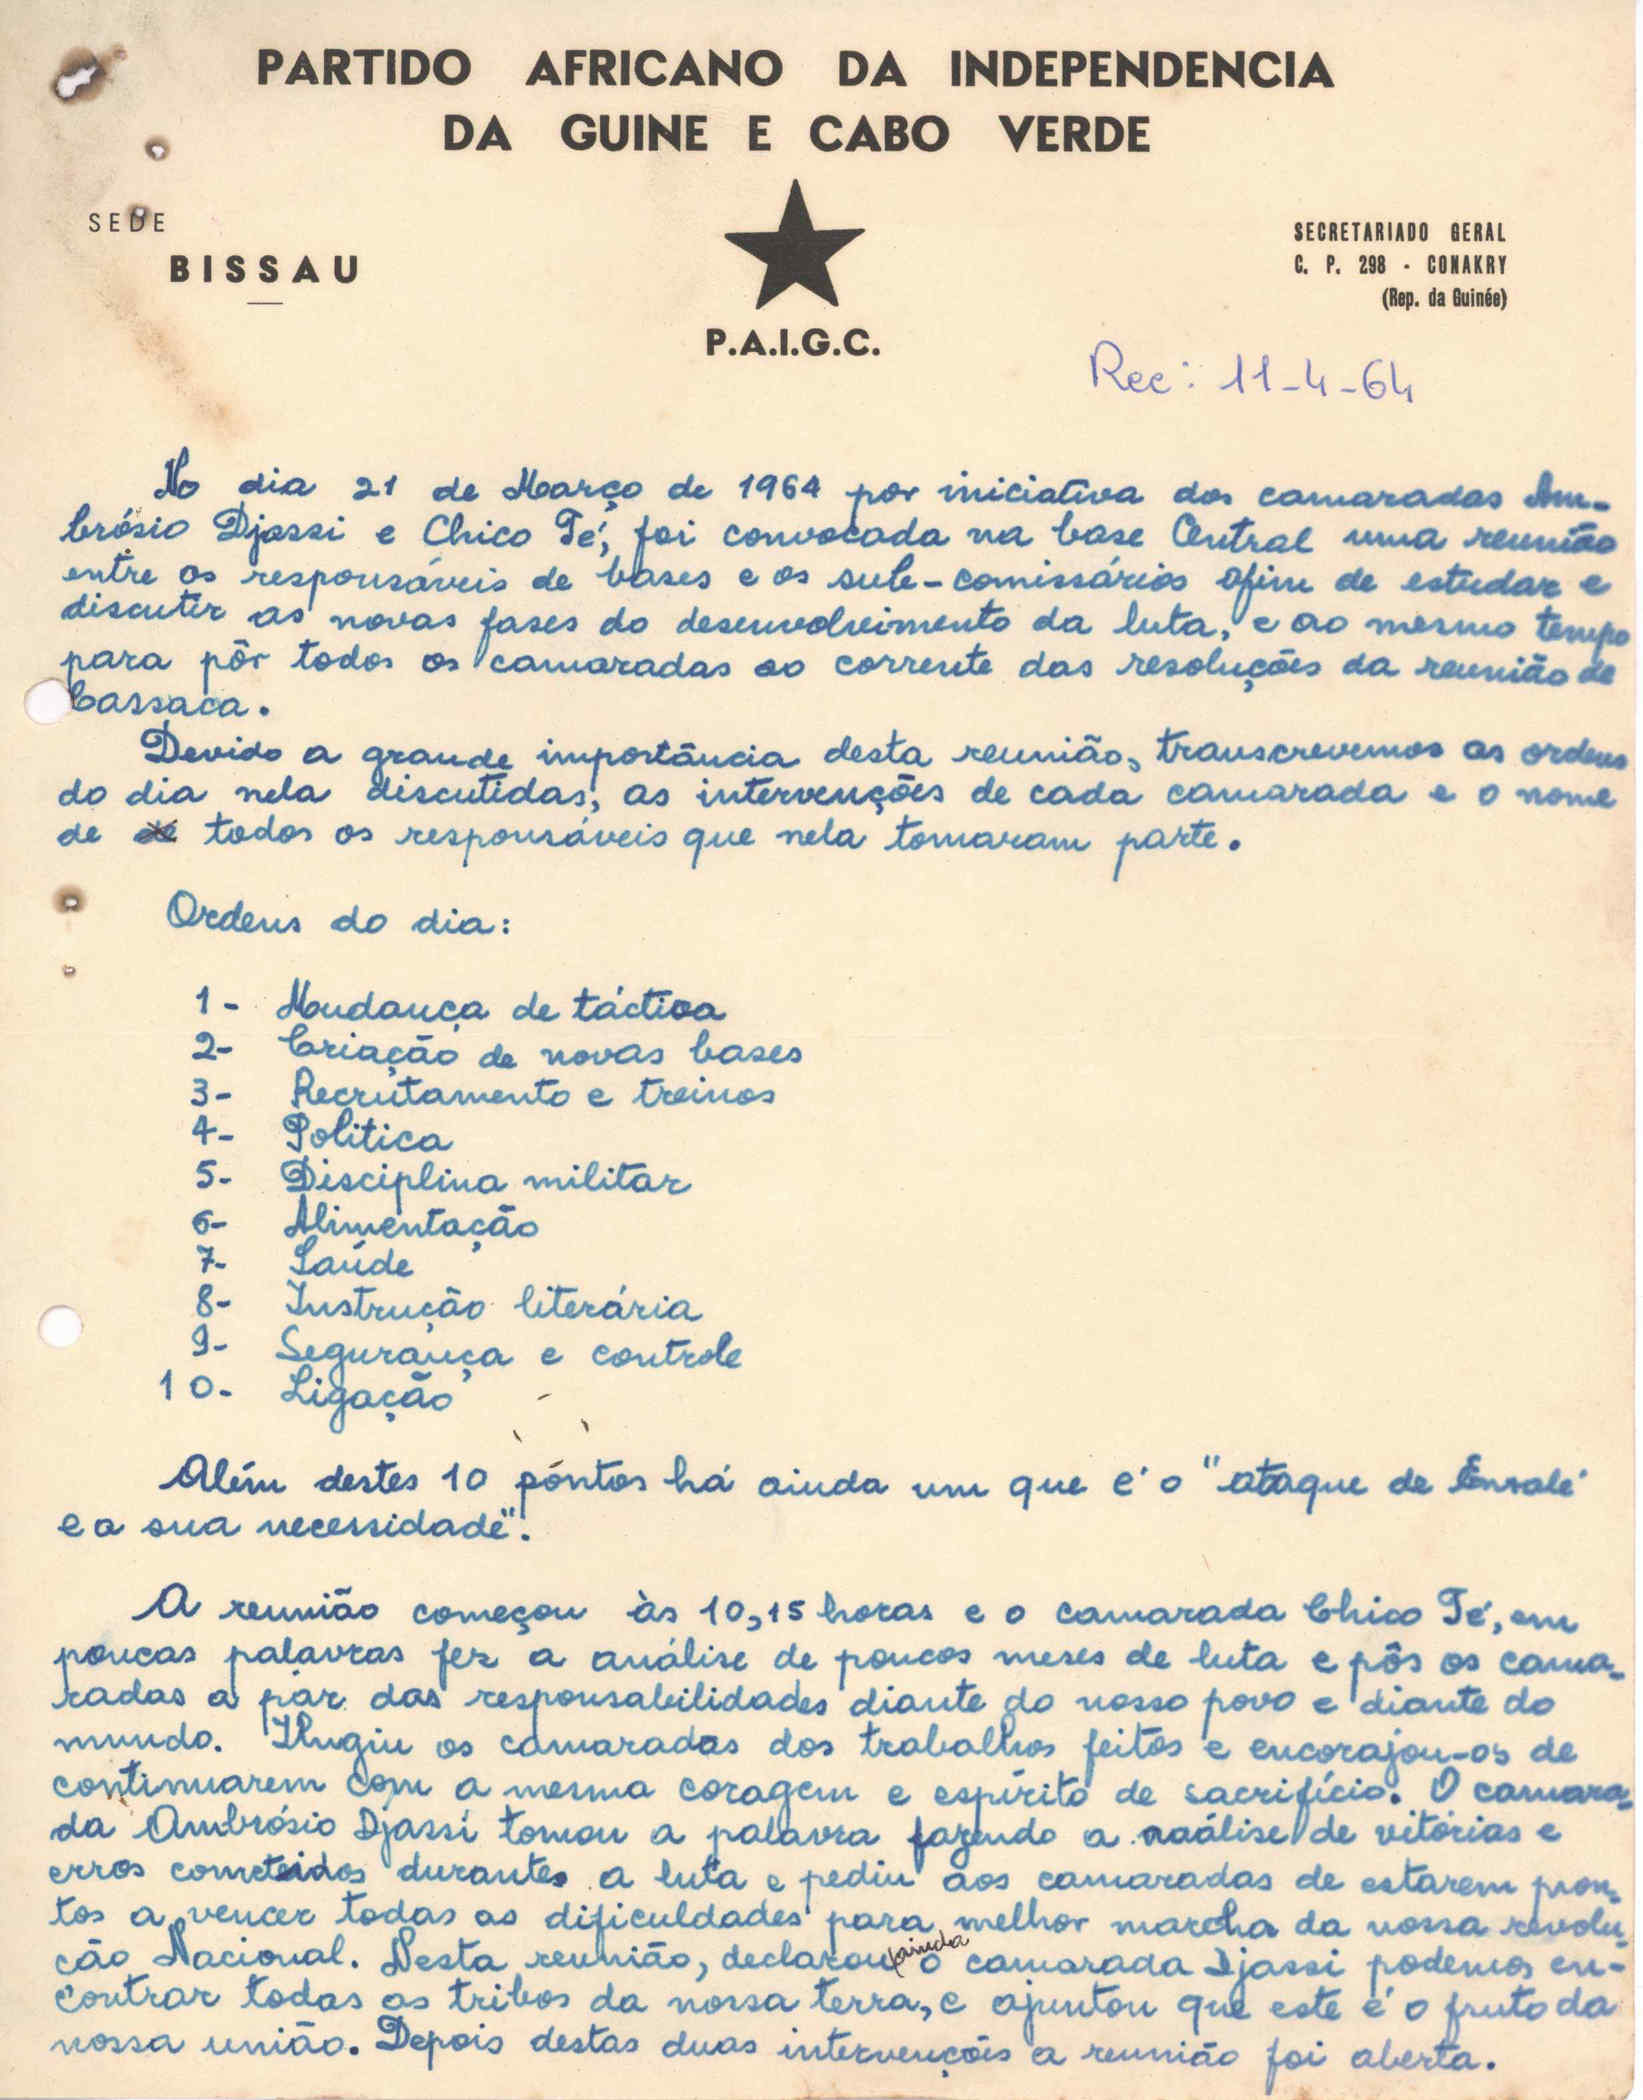 PARTIDO AFRICANO DA INDEPENDENCIA
DA GUINE E CABO VERDE
SEDE
BISSAU
SECRETARIADO GERAL
C. P. 298 - CONAKRY
(Rep. da Guinée)
P.A.I.G.C.
Rec: 11-4-64
No dia 21 de Março de 1964 por iniciativa dos camaradas Am-
brósio Djassi e Chico Té, foi convocada na base Central uma reunião
entre os responsáveis de bases e os sub-comissários afim de estudar e
discutir as novas fases do desenvolvimento da luta, e ao mesmo tempo
para pôr todos os camaradas ao corrente das resoluções da reunião de
Cassaca.
Devido a grande importância desta reunião, transcrevemos as ordens
do dia nela discutidas, as intervenções de cada camarada e o nome
de de todos os responsáveis que nela tomaram parte.
Ordens do dia:
1- Mudança de táctica
2- Criação de novas bases
3- Recrutamento e treinos
4- Politica
5- Disciplina militar
6- Alimentação
7- Saúde
8- Instrução literária
9- Segurança e controle
10- Ligação
Além destes 10 pontos há ainda um que é o "ataque de Enxalé
e a sua necessidade".
A reunião começou às 10,15 horas e o camarada Chico Té, em
poucas palavras fez a análise de poucos meses de luta e pôs os cama-
radas a par das responsabilidades diante do nosso povo e diante do
mundo. Elugiu os camaradas dos trabalhos feitos e encorajou-os de
continuarem com a mesma coragem e espírito de sacrifício. O camara-
da Ambrósio Djassi tomou a palavra fazendo a análise de vitórias e
erros cometidos durante a luta e pediu aos camaradas de estarem pron-
tos a vencer todas as dificuldades para melhor marcha da nossa revolu-
ção Nacional. Nesta reunião, declarou ainda o camarada Djassi podemos en-
contrar todas as tribos da nossa terra, e ajuntou que este é o fruto da
nossa união. Depois destas duas intervenções a reunião foi aberta.